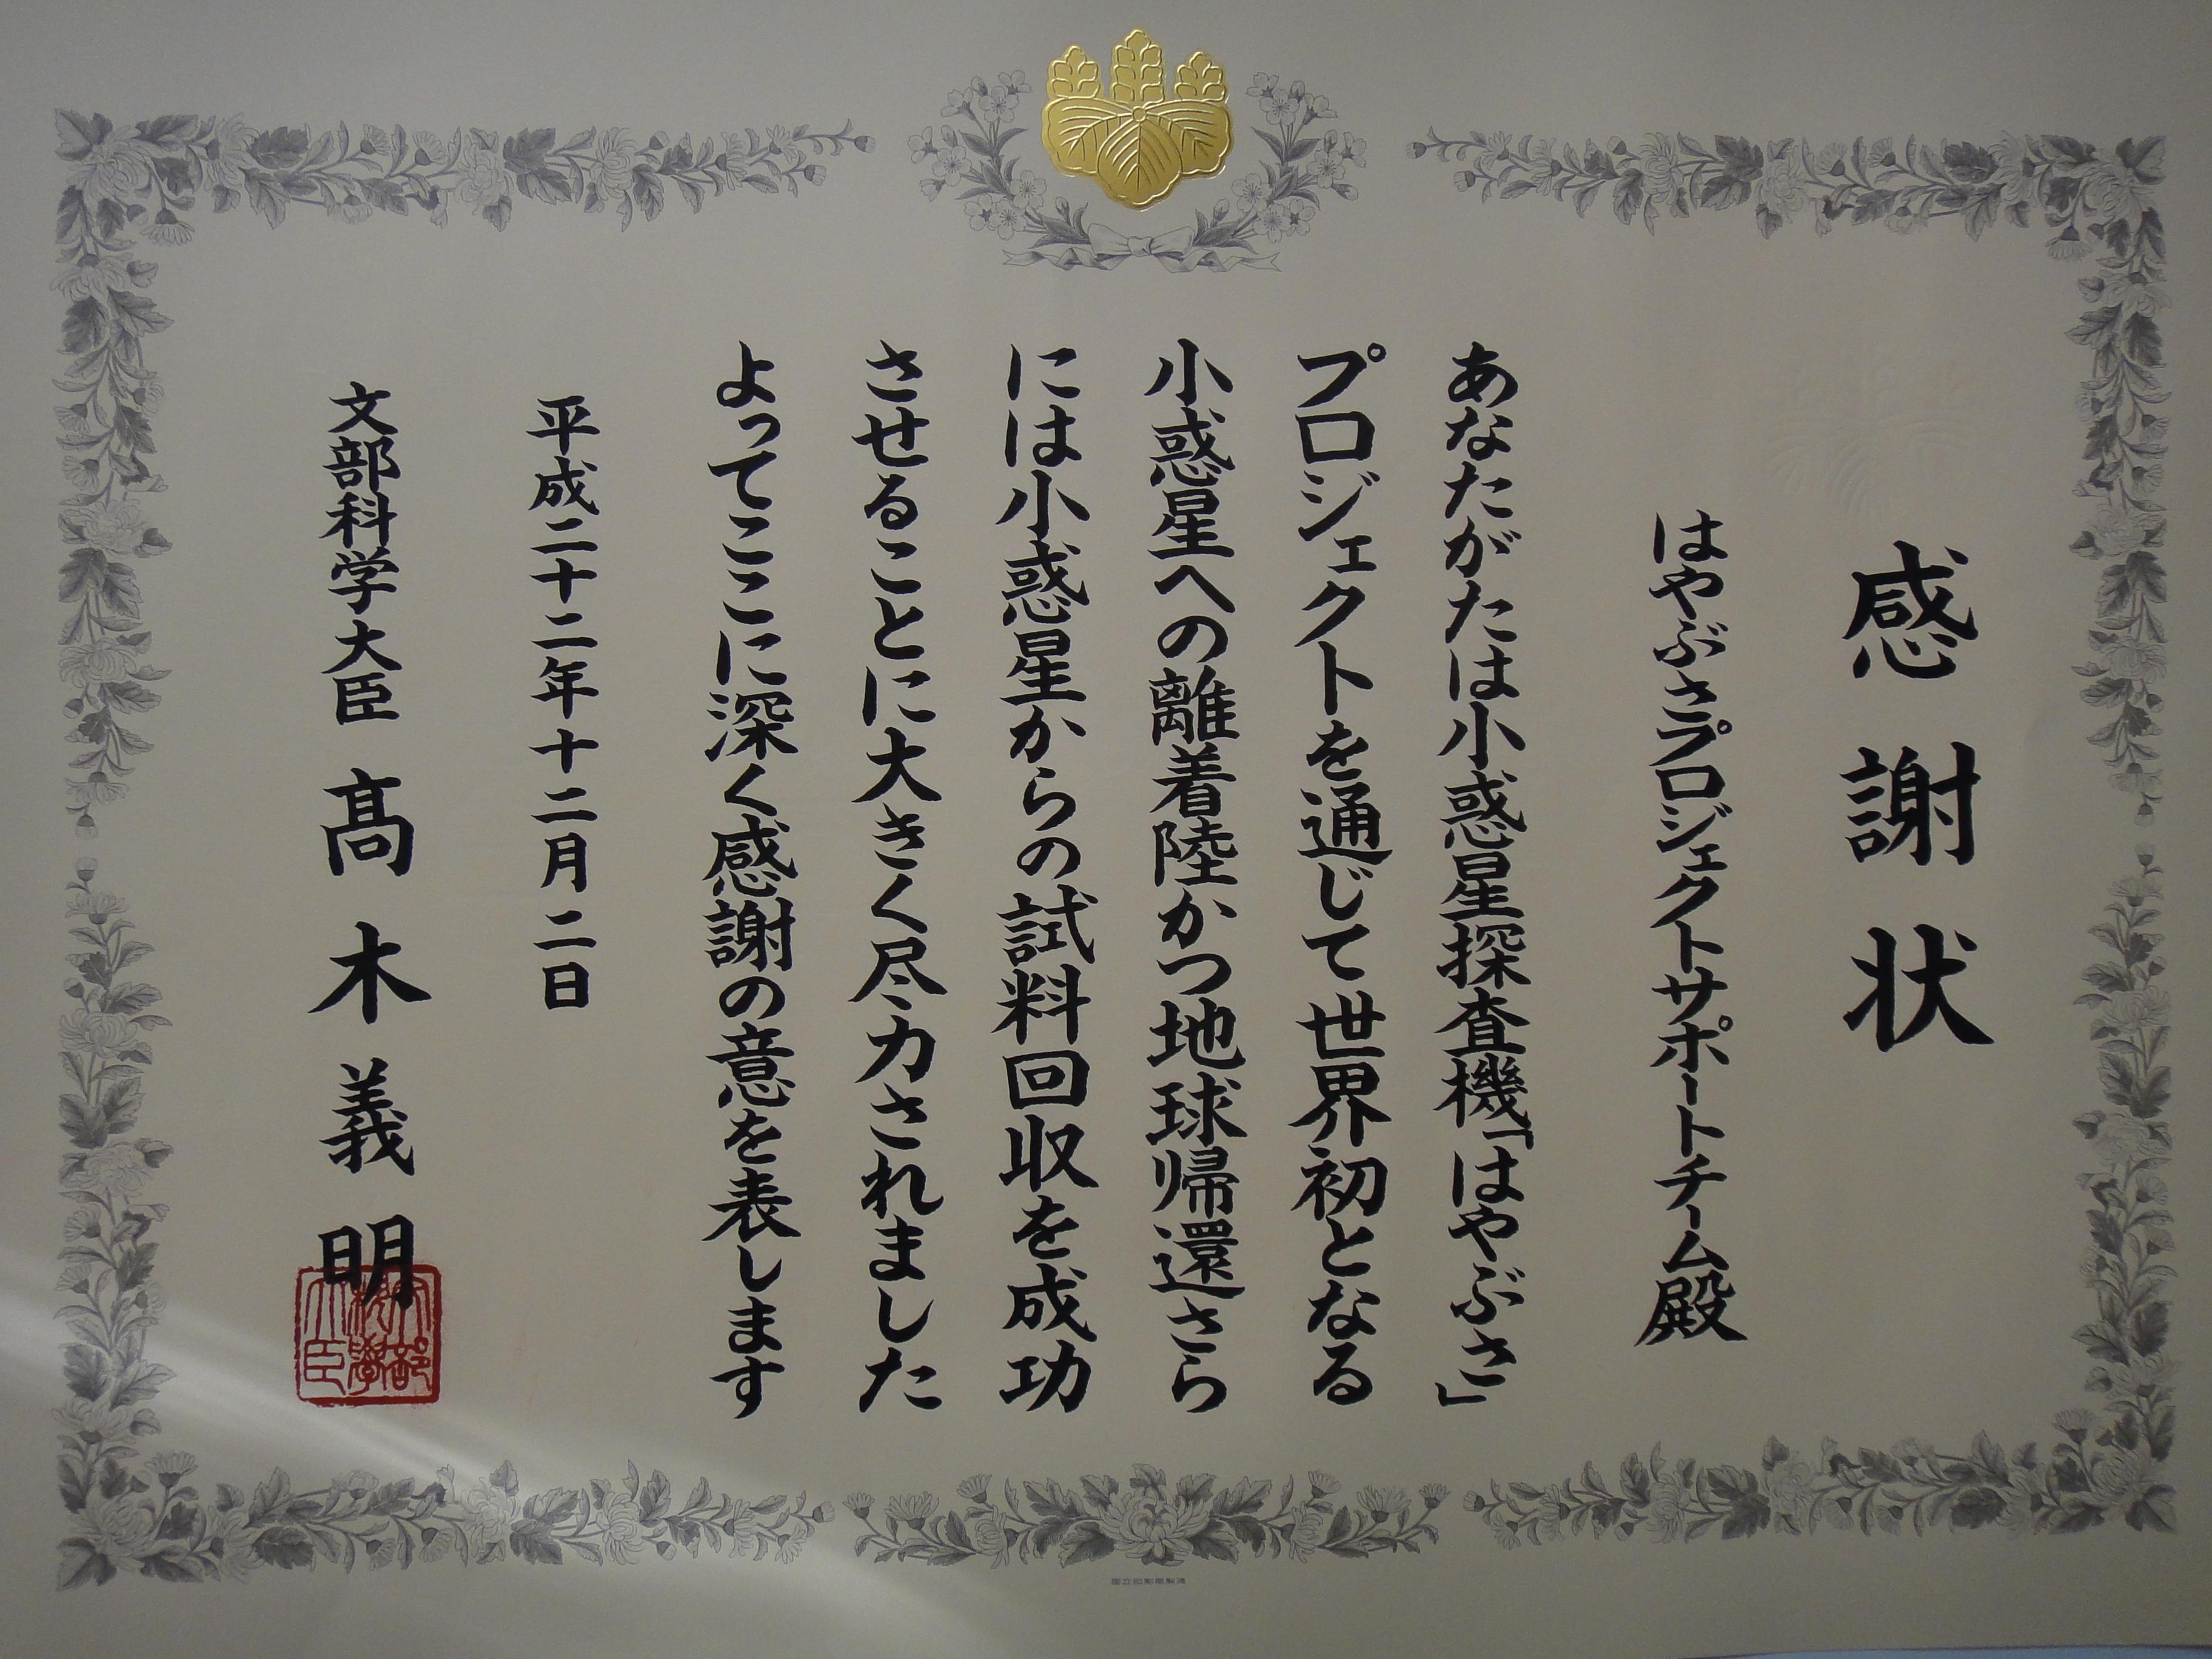 感謝状
はやぶさプロジェクトサポートチーム殿
あなたがたは小惑星探査機「はやぶさ」
プロジェクトを通じて世界初となる
小惑星への離着陸かつ地球帰還さら
には小惑星からの試料回収を成功
させることに大きく尽力されました
よってここに深く感謝の意を表します
平成二十二年十二月二日
文部科学大臣 髙木義明
文部科學大臣
国立印刷局製造